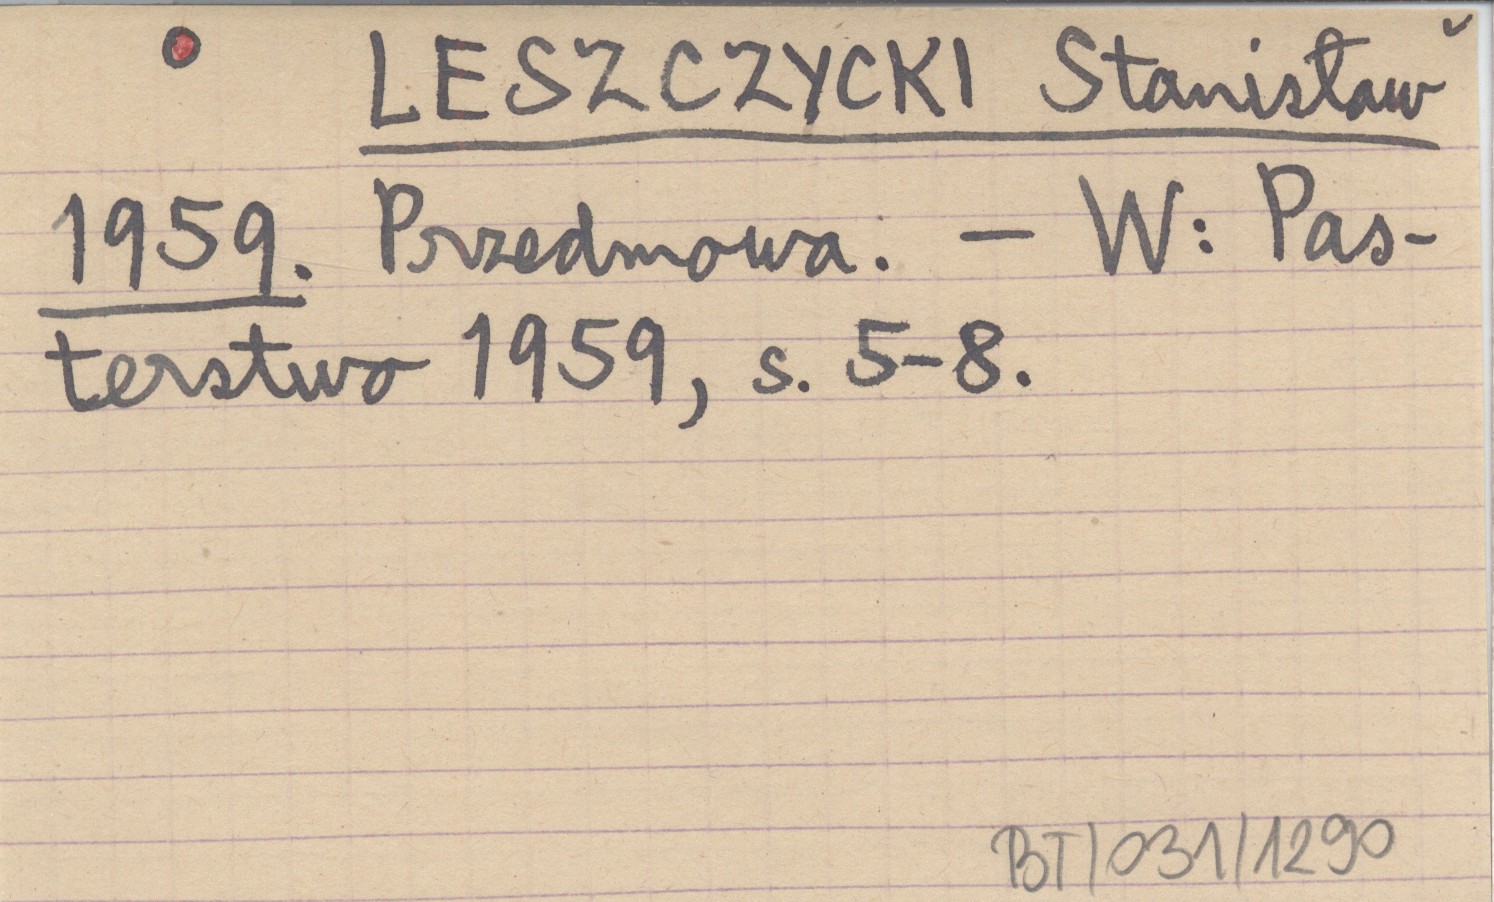 LESZCZYCKI Stanisław
1959. Przedmowa. – W: Pas-
terstwo 1959, s. 5-8.
BT/031/1290